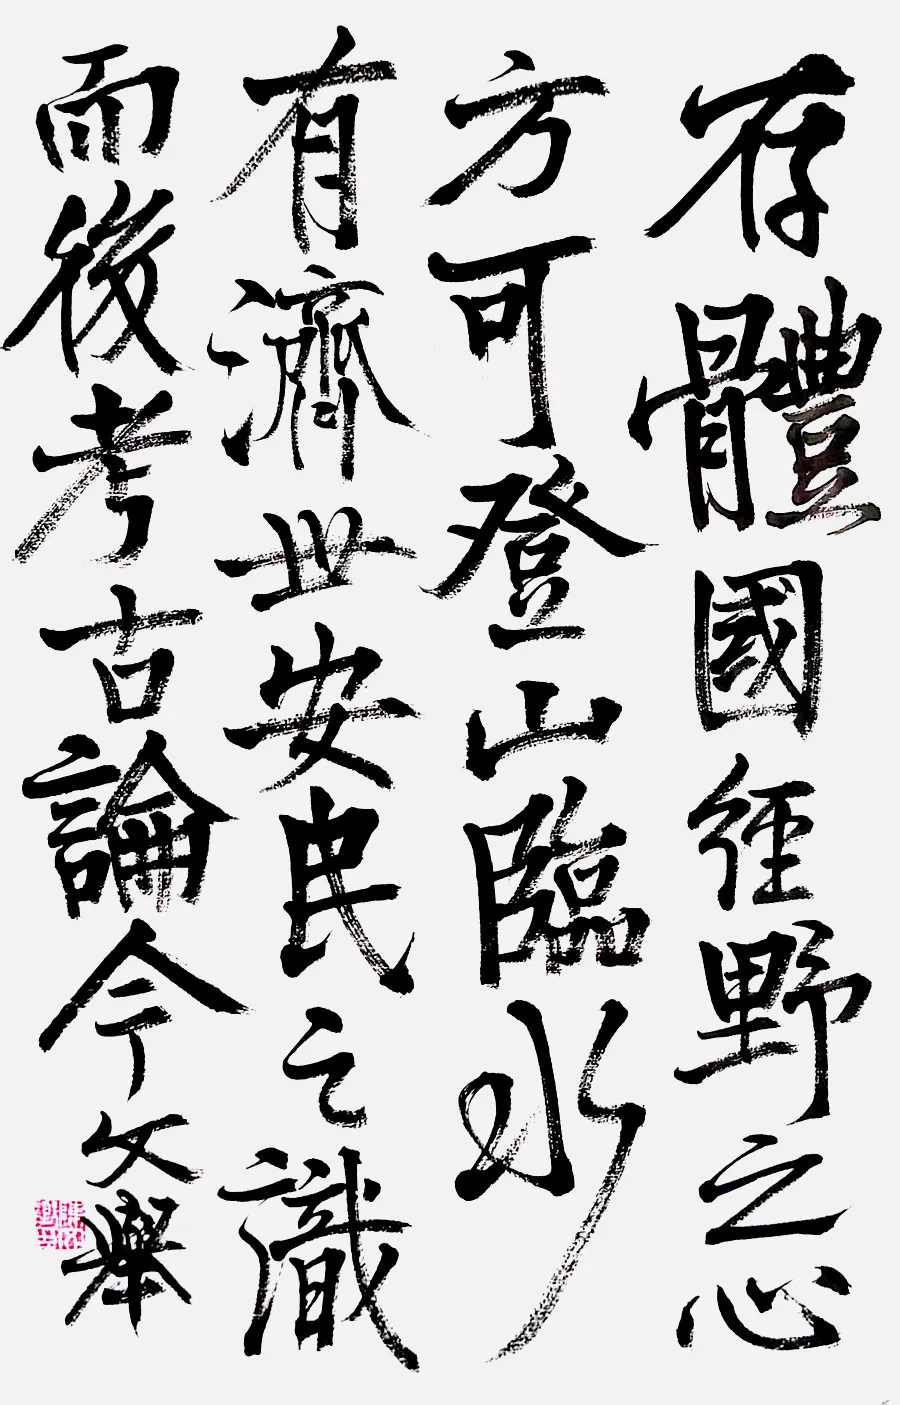 存體國經野之心
方可登山臨水
有濟世安民之識
而後考古論今
文舉